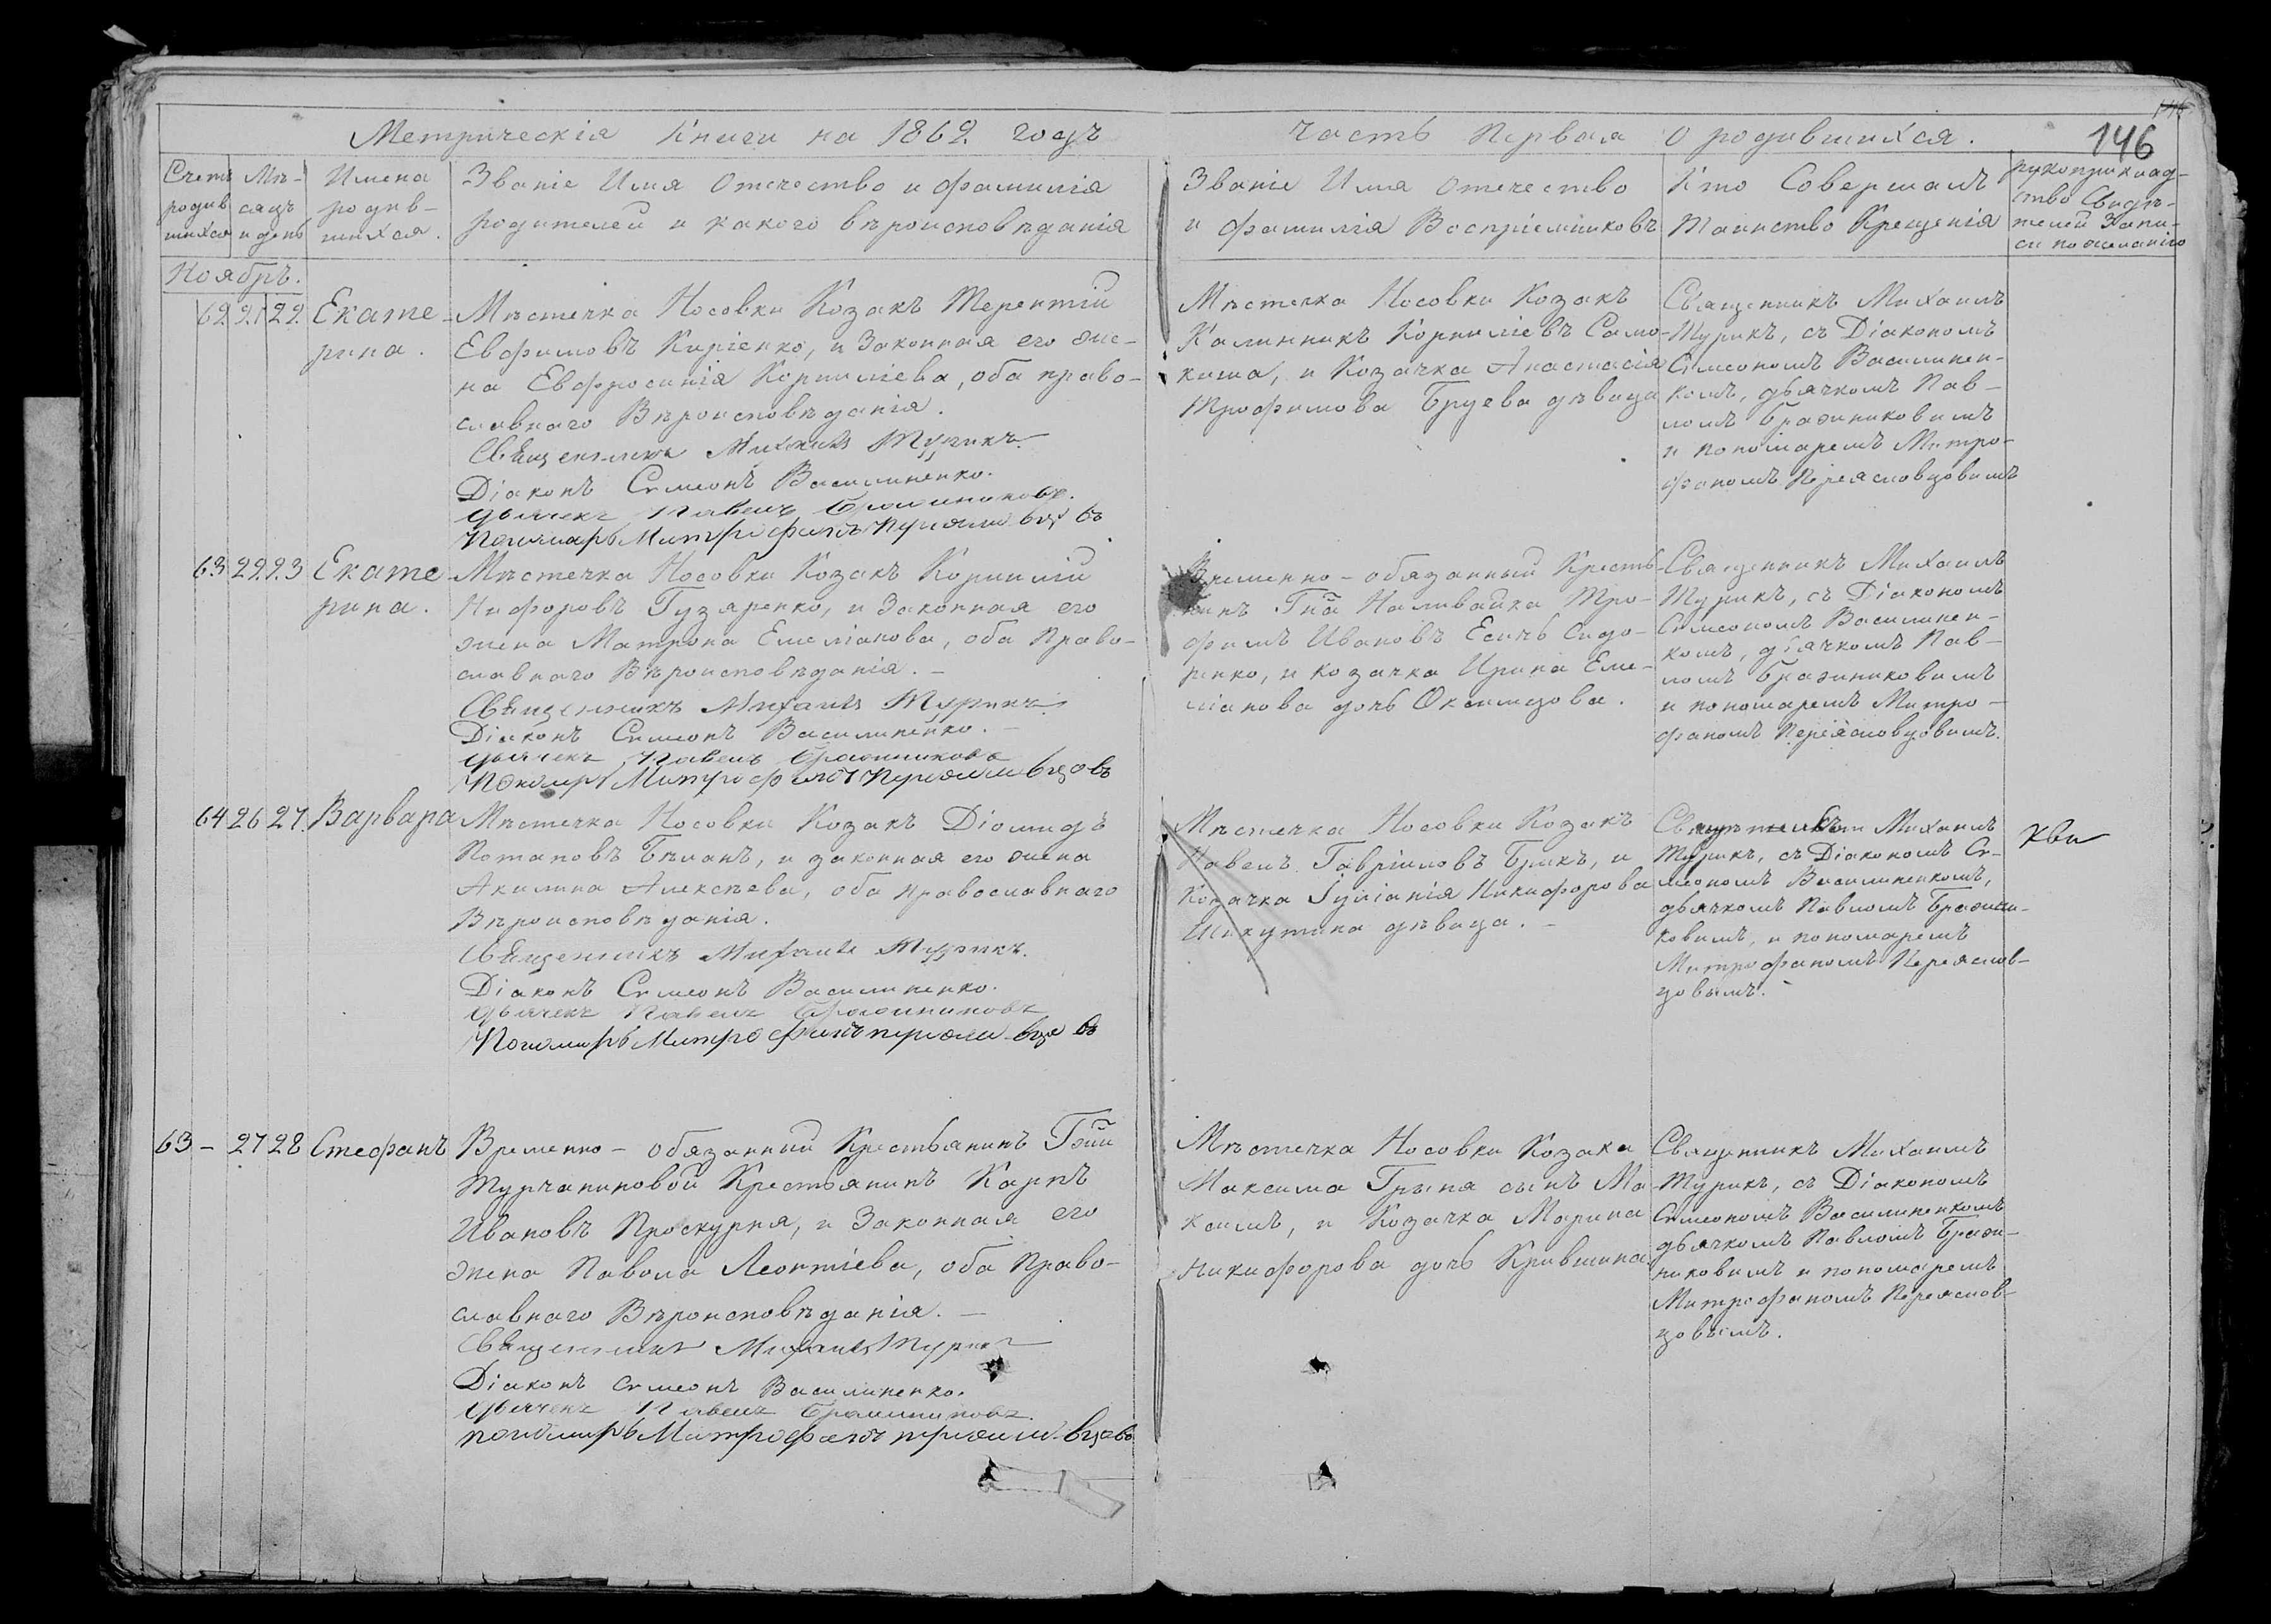 Метрическія Книги на 1862 годъ
Часть Первая о родившихся.
146
Счетъ родив шихся
Мѣ- сяцъ и день
Имена родив- шихся.
Званіе Имя Отечество и фамилія
родителей и какого вѣроисповѣданія
Званіе Имя Отечество
и фамилія Воспріемниковъ
Кто Совершалъ
Таинство Крещенія
рукоприклад-
ство Свидѣ-
телей Запи-
си по желанію
Ноябрь.
62 21 22 Екате-
рина.
Мѣстечка Носовки Козакъ Терентій
Евфимовъ Киріенко, и Законная его же-
на Евфросинія Корниліева, оба право-
славнаго Вѣроисповѣданія.
Священникъ Михаилъ Турикъ
Діаконъ Симеонъ Василиненко.
Дьячекъ Павелъ Бражниковъ.
Пономарь Митрофанъ Переясловцовъ
Мѣстечка Носовки Козакъ
Калинникъ Корниліевъ Само-
киша, и Козачка Анастасія
Трофимова Бруева дѣвица
Священникъ Михаилъ
Турикъ, съ Діакономъ
Симеономъ Василинен-
комъ, дьячкомъ Пав-
ломъ Бражниковимъ
и пономаремъ Митро-
фаномъ Переясловцовимъ
63 22 23 Екате-
рина.
Мѣстечка Носовки Козакъ Корнилій
Нифоровъ Гузяренко, и Законная его
жена Матрона Емеліанова, оба Право-
славнаго Вѣроисповѣданія. -
Священникъ Михаилъ Турикъ
Діаконъ Симеонъ Василиненко. -
Дьячекъ Павелъ Бражниковъ
Пономарь Митрофанъ Переясловцовъ
Временно-обязанный Кресть-
нинъ Гна Наливайка Тро-
фимъ Ивановъ Есичь Сидо-
ренко, и козачка Ирина Еме-
ліанова дочь Оксимцова.
Священникъ Михаилъ
Турикъ, съ Діакономъ
Симеономъ Василинен-
комъ, дьячкомъ Пав-
ломъ Бражниковимъ
и пономаремъ Митро-
фаномъ Переясловцовимъ.
64 26 27 Варвара
Мѣстечка Носовки Козакъ Діомидъ
Потаповъ Бѣланъ, и законная его жена
Акилина Алексѣева, оба православнаго
Вѣроисповѣданія.
Священникъ Михаилъ Турикъ.
Діаконъ Симеонъ Василиненко.
Дьячекъ Павелъ Бражниковъ
Пономарь Митрофанъ Переясловцовъ
Мѣстечка Носовки Козакъ
Павелъ Гавріиловъ Брикъ, и
Козачка Іуліанія Никифорова
Шикутина дѣвица. -
Михаилъ
Турикъ, съ Діакономъ Си-
меономъ Василиненкомъ,
дьячкомъ Павломъ Бражни-
ковимъ, и пономаремъ
Митрофаномъ Переяслов-
цовымъ.
63 - 27 28 Стефанъ
Временно-обязанный Крестьянинъ Гжи
Турчаниновой Крестьянинъ Карпъ
Ивановъ Проскурня, и Законная его
жена Павола Леонтіева, оба Право-
славнаго Вѣроисповѣданія. -
Священникъ Михаилъ Турикъ
Діаконъ Симеонъ Василиненко.
Дьячекъ Павелъ Бражниковъ.
пономарь Митрофанъ переясловцовъ
Мѣстечка Носовки Козака
Максима Грыня сынъ Ма
ксимъ, и Козачка Марина
Никифорова дочь Крившина
Священникъ Михаилъ
Турикъ, съ Діакономъ
Симеономъ Василиненкомъ
дьячкомъ Павломъ Браж-
никовимъ и пономаремъ
Митрофаномъ Переяслов-
цовымъ.